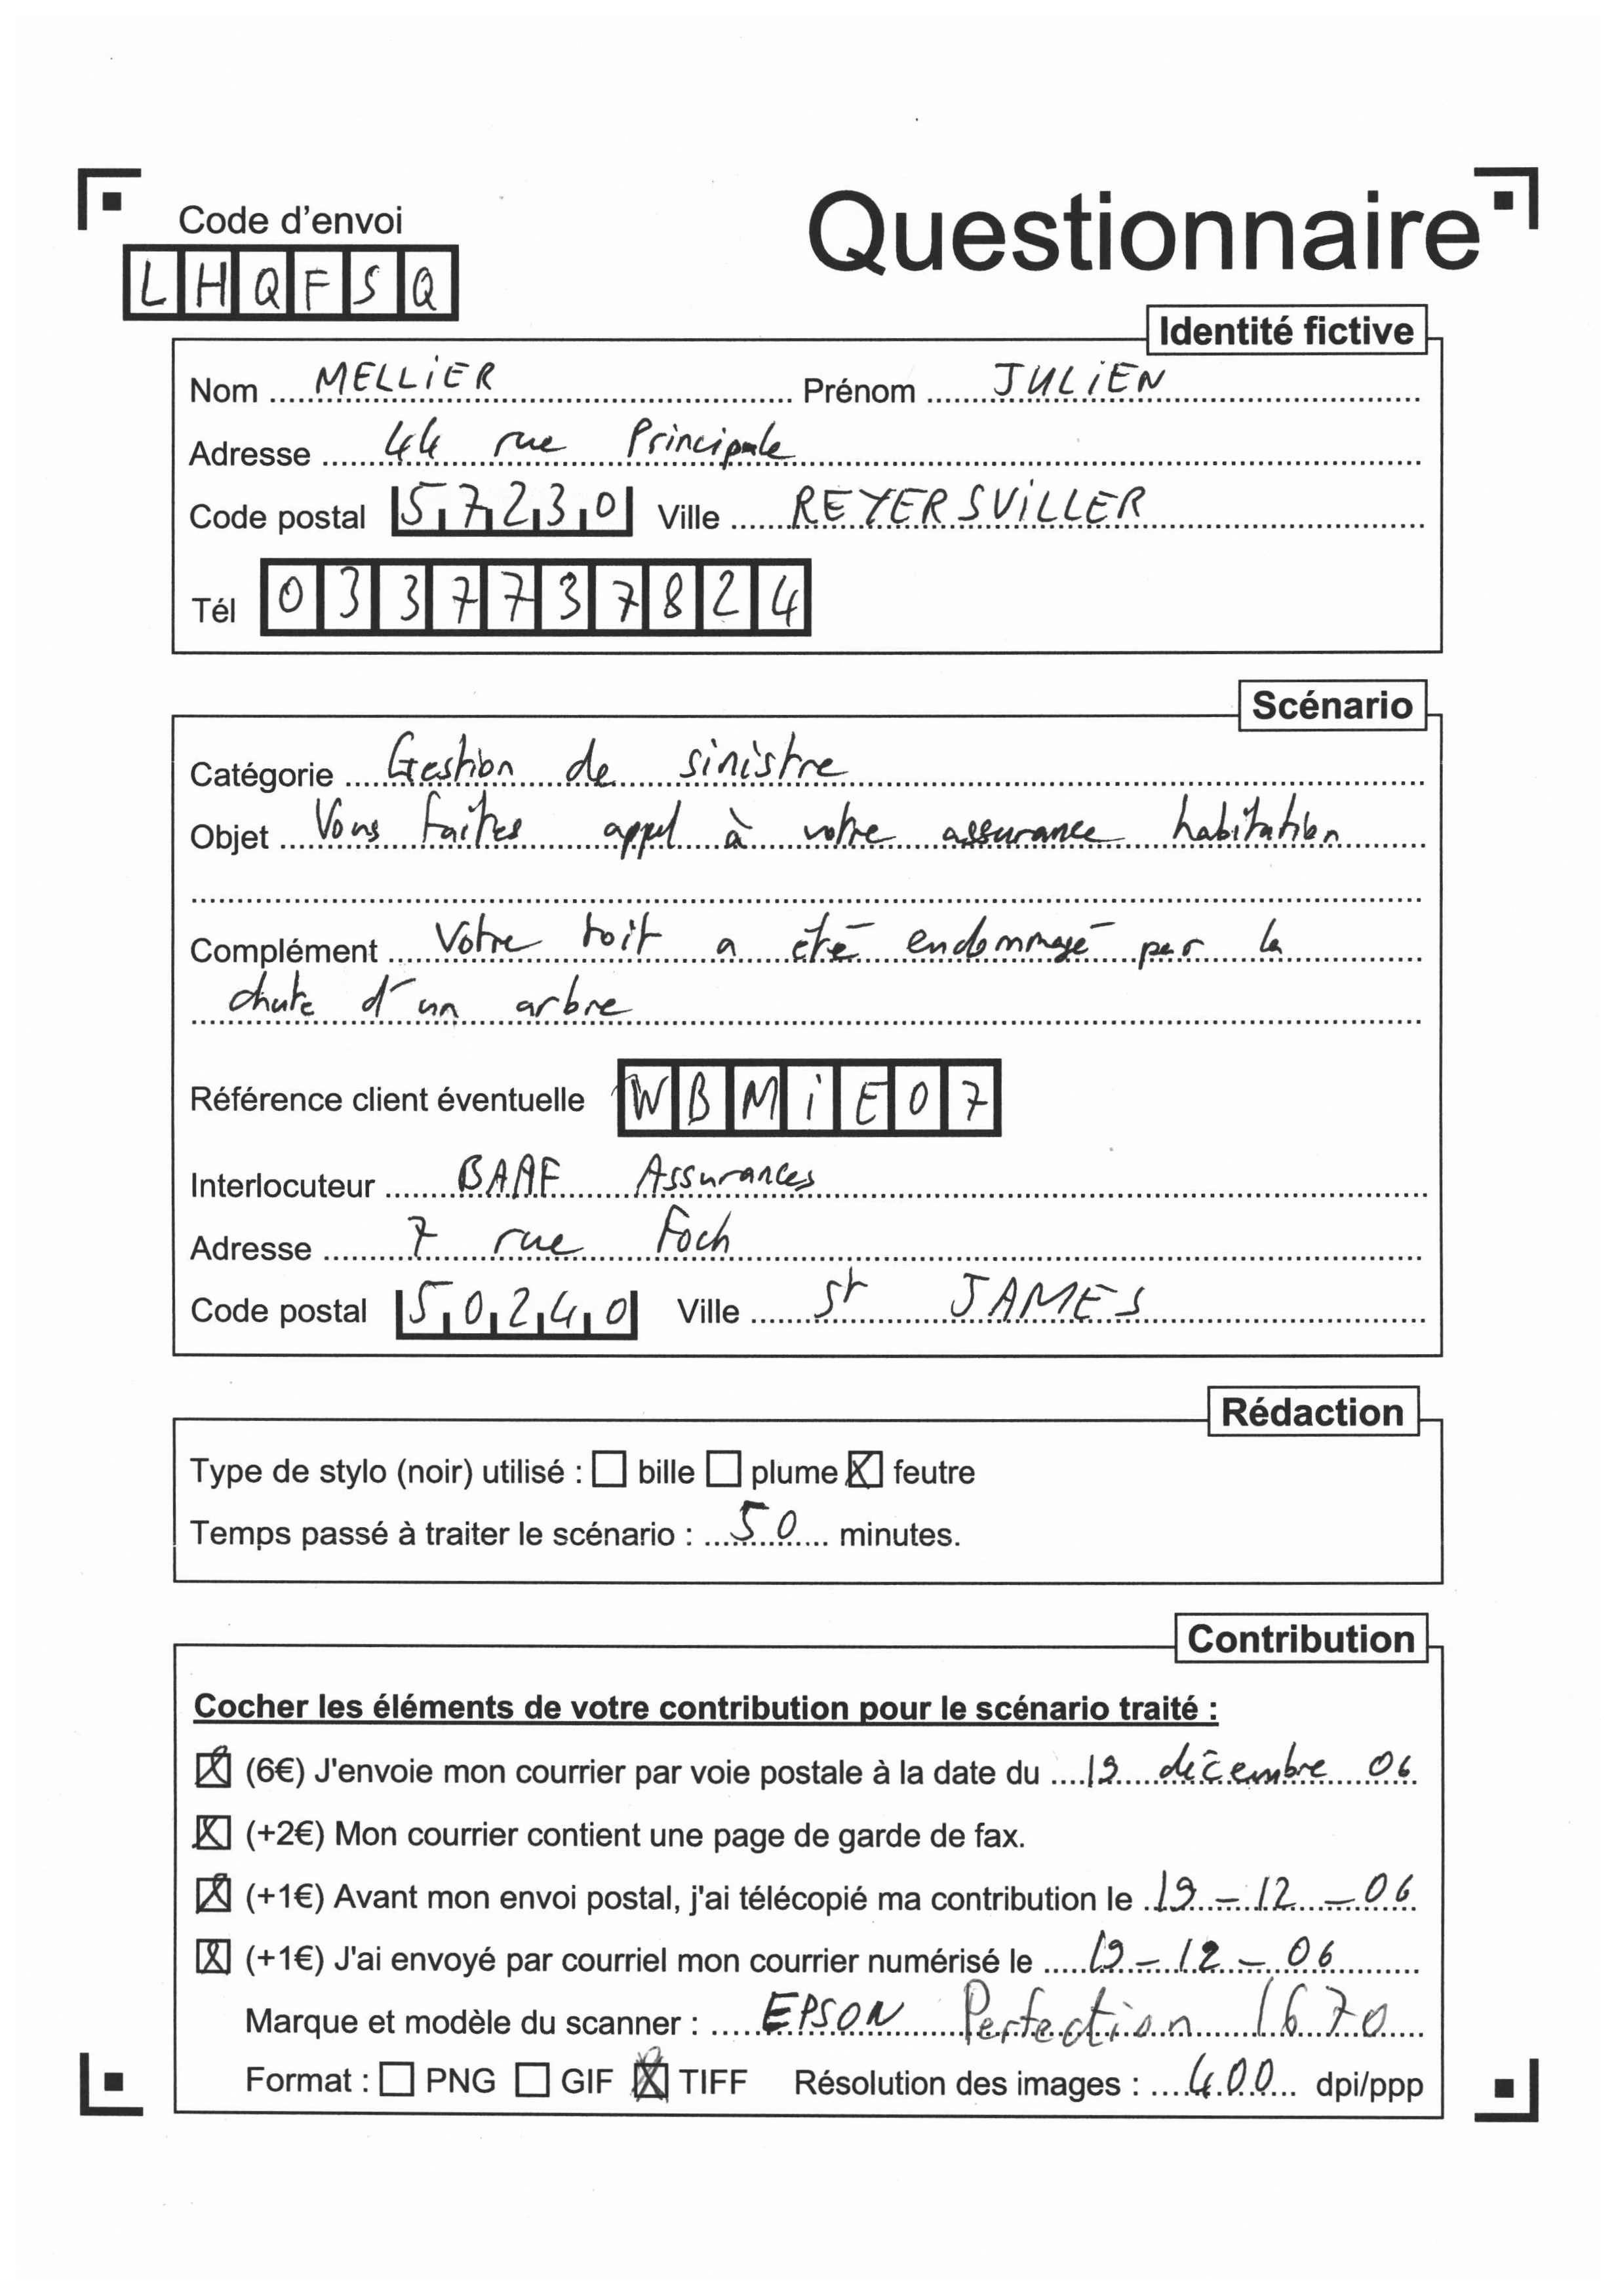 Questionnaire
Code d'envoi
LHQFSQ
Identité fictive
Nom MELLiER Prénom JULiEN
Adresse 44 rue Principale
Code postal 57230 Ville REYERSViLLER
Tél 0337737824
Scénario
Catégorie Gestion de sinistre
Objet Vous faites appel à votre assurance habitation
Complément Votre toit a été endommagé par la
chute d'un arbre
Référence client éventuelle WBMiE07
Interlocuteur BAAF Assurances
Adresse 7 rue Foch
Code postal 50240 Ville St JAMES
Rédaction
Type de stylo (noir) utilisé : ☐ bille ☐ plume ☒ feutre
Temps passé à traiter le scénario : 50 minutes.
Contribution
Cocher les éléments de votre contribution pour le scénario traité :
☒ (6€) J'envoie mon courrier par voie postale à la date du 19 décembre 06
☒ (+2€) Mon courrier contient une page de garde de fax.
☒ (+1€) Avant mon envoi postal, j'ai télécopié ma contribution le 19-12-06
☒ (+1€) J'ai envoyé par courriel mon courrier numérisé le 19-12-06
Marque et modèle du scanner : EPSON Perfection 1670
Format : ☐ PNG ☐ GIF ☒ TIFF Résolution des images : 400 dpi/ppp